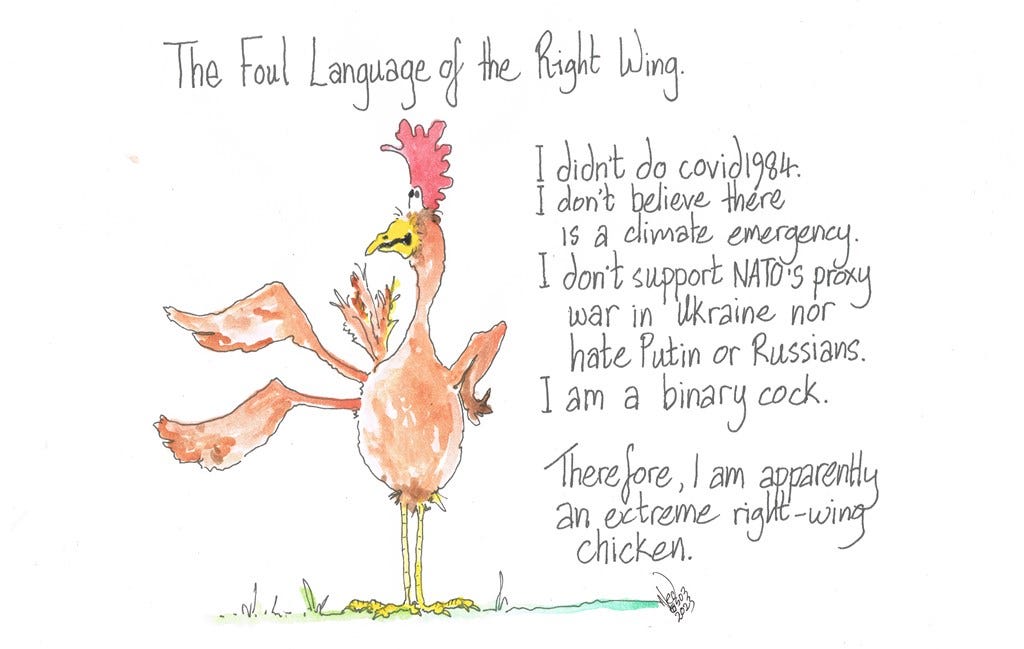 The Foul Language of the Right Wing.
I didn't do covid1984.
I don't believe there
is a climate emergency.
I don't support NATO's proxy
war in Ukraine nor
hate Putin or Russians.
I am a binary cock.
Therefore, I am apparently
an extreme right-wing
chicken.
2023